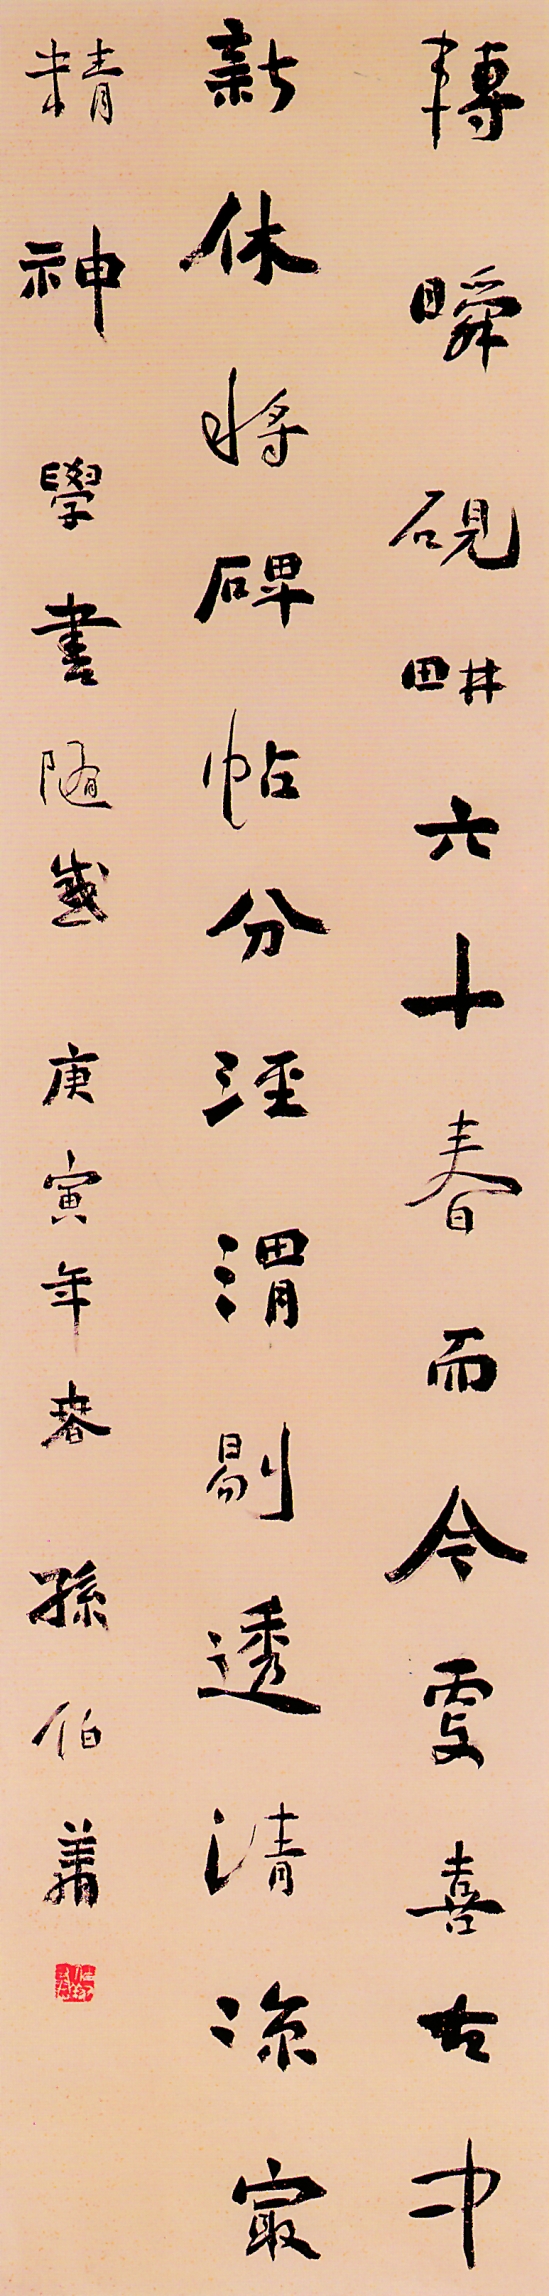 轉瞬硯畊六十春而今更喜古中
新休將碑帖分涇渭剔透清涼最
精神 學書隨感 庚寅年春 孫伯翔